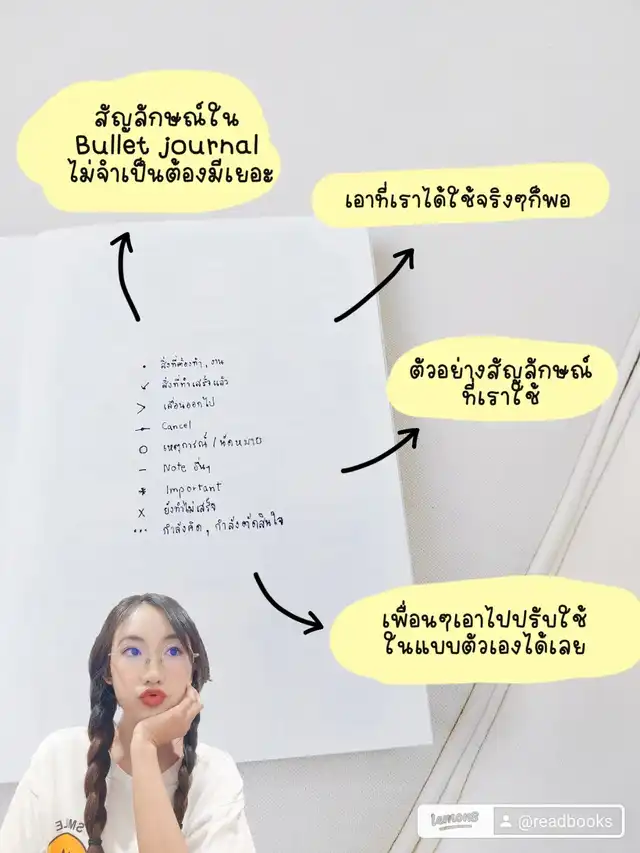 สัญลักษณ์ใน
Bullet journal
ไม่จำเป็นต้องมีเยอะ
เอาที่เราได้ใช้จริงๆก็พอ
ตัวอย่างสัญลักษณ์
ที่เราใช้
• สิ่งที่ต้องทำ, งาน
✓ สิ่งที่ทำเสร็จแล้ว
> เลื่อนออกไป
Cancel
○ เหตุการณ์ / นัดหมาย
– Note อื่นๆ
* Important
x ยังทำไม่เสร็จ
... กำลังคิด, กำลังตัดสินใจ
เพื่อนๆเอาไปปรับใช้
ในแบบตัวเองได้เลย
SMILE
lemon8 @readbooks